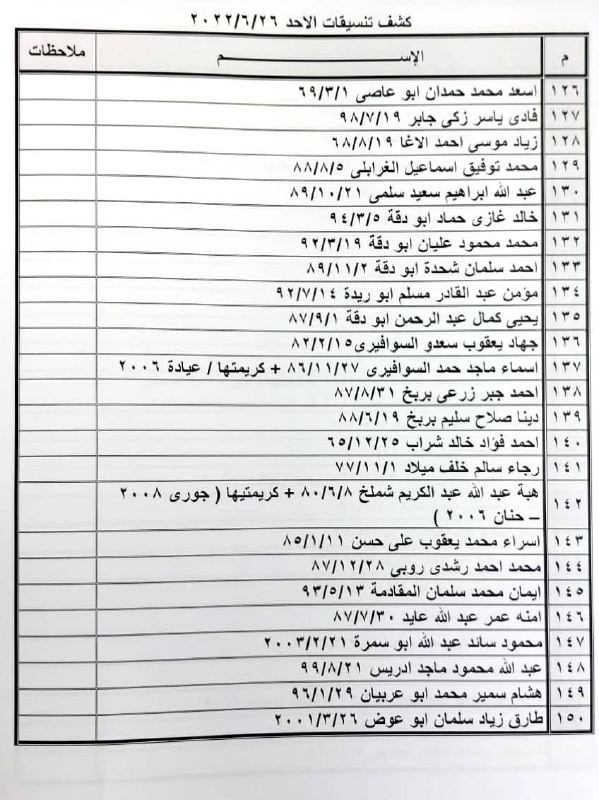 كشف تنسيقات الاحد ٢٠٢٢/٦/٢٦
م الإســــم ملاحظات
١٢٦ اسعد محمد حمدان ابو عاصى ٦٩/٣/١
١٢٧ فادى ياسر زكى جابر ٩٨/٧/١٩
١٢٨ زياد موسى احمد الاغا ٦٨/٨/١٩
١٢٩ محمد توفيق اسماعيل الغرابلى ٨٨/٨/٥
١٣٠ عبد الله ابراهيم سعيد سلمى ٨٩/١٠/٢١
١٣١ خالد غازى حماد ابو دقة ٩٤/٣/٥
١٣٢ محمد محمود عليان ابو دقة ٩٢/٣/١٩
١٣٣ احمد سلمان شحدة ابو دقة ٨٩/١١/٢
١٣٤ مؤمن عبد القادر مسلم ابو ريدة ٩٢/٧/١٤
١٣٥ يحيى كمال عبد الرحمن ابو دقة ٨٧/٩/١
١٣٦ جهاد يعقوب سعدو السوافيرى٨٢/٢/١٥
١٣٧ اسماء ماجد حمد السوافيرى ٨٦/١١/٢٧ + كريمتها / عيادة ٢٠٠٦
١٣٨ احمد جبر زرعى بربخ ٨٧/٨/٣١
١٣٩ دينا صلاح سليم بربخ ٨٨/٦/١٩
١٤٠ احمد فؤاد خالد شراب ٦٥/١٢/٢٥
١٤١ رجاء سالم خلف ميلاد ٧٧/١١/١
١٤٢ هبة عبد الله عبد الكريم شملخ ٨٠/٦/٨ + كريمتيها ( جورى ٢٠٠٨
– حنان ٢٠٠٦ )
١٤٣ اسراء محمد يعقوب على حسن ٨٥/١/١١
١٤٤ محمد احمد رشدى روبي ٨٧/١٢/٢٨
١٤٥ ايمان محمد سلمان المقادمة ٩٣/٥/١٣
١٤٦ امنه عمر عبد الله عايد ٨٧/٧/٣٠
١٤٧ محمود سائد عبد الله ابو سمرة ٢٠٠٣/٢/٢١
١٤٨ عبد الله محمود ماجد ادريس ٩٩/٨/٢١
١٤٩ هشام سمير محمد ابو عربيان ٩٦/١/٢٩
١٥٠ طارق زياد سلمان ابو عوض ٢٠٠١/٣/٢٦